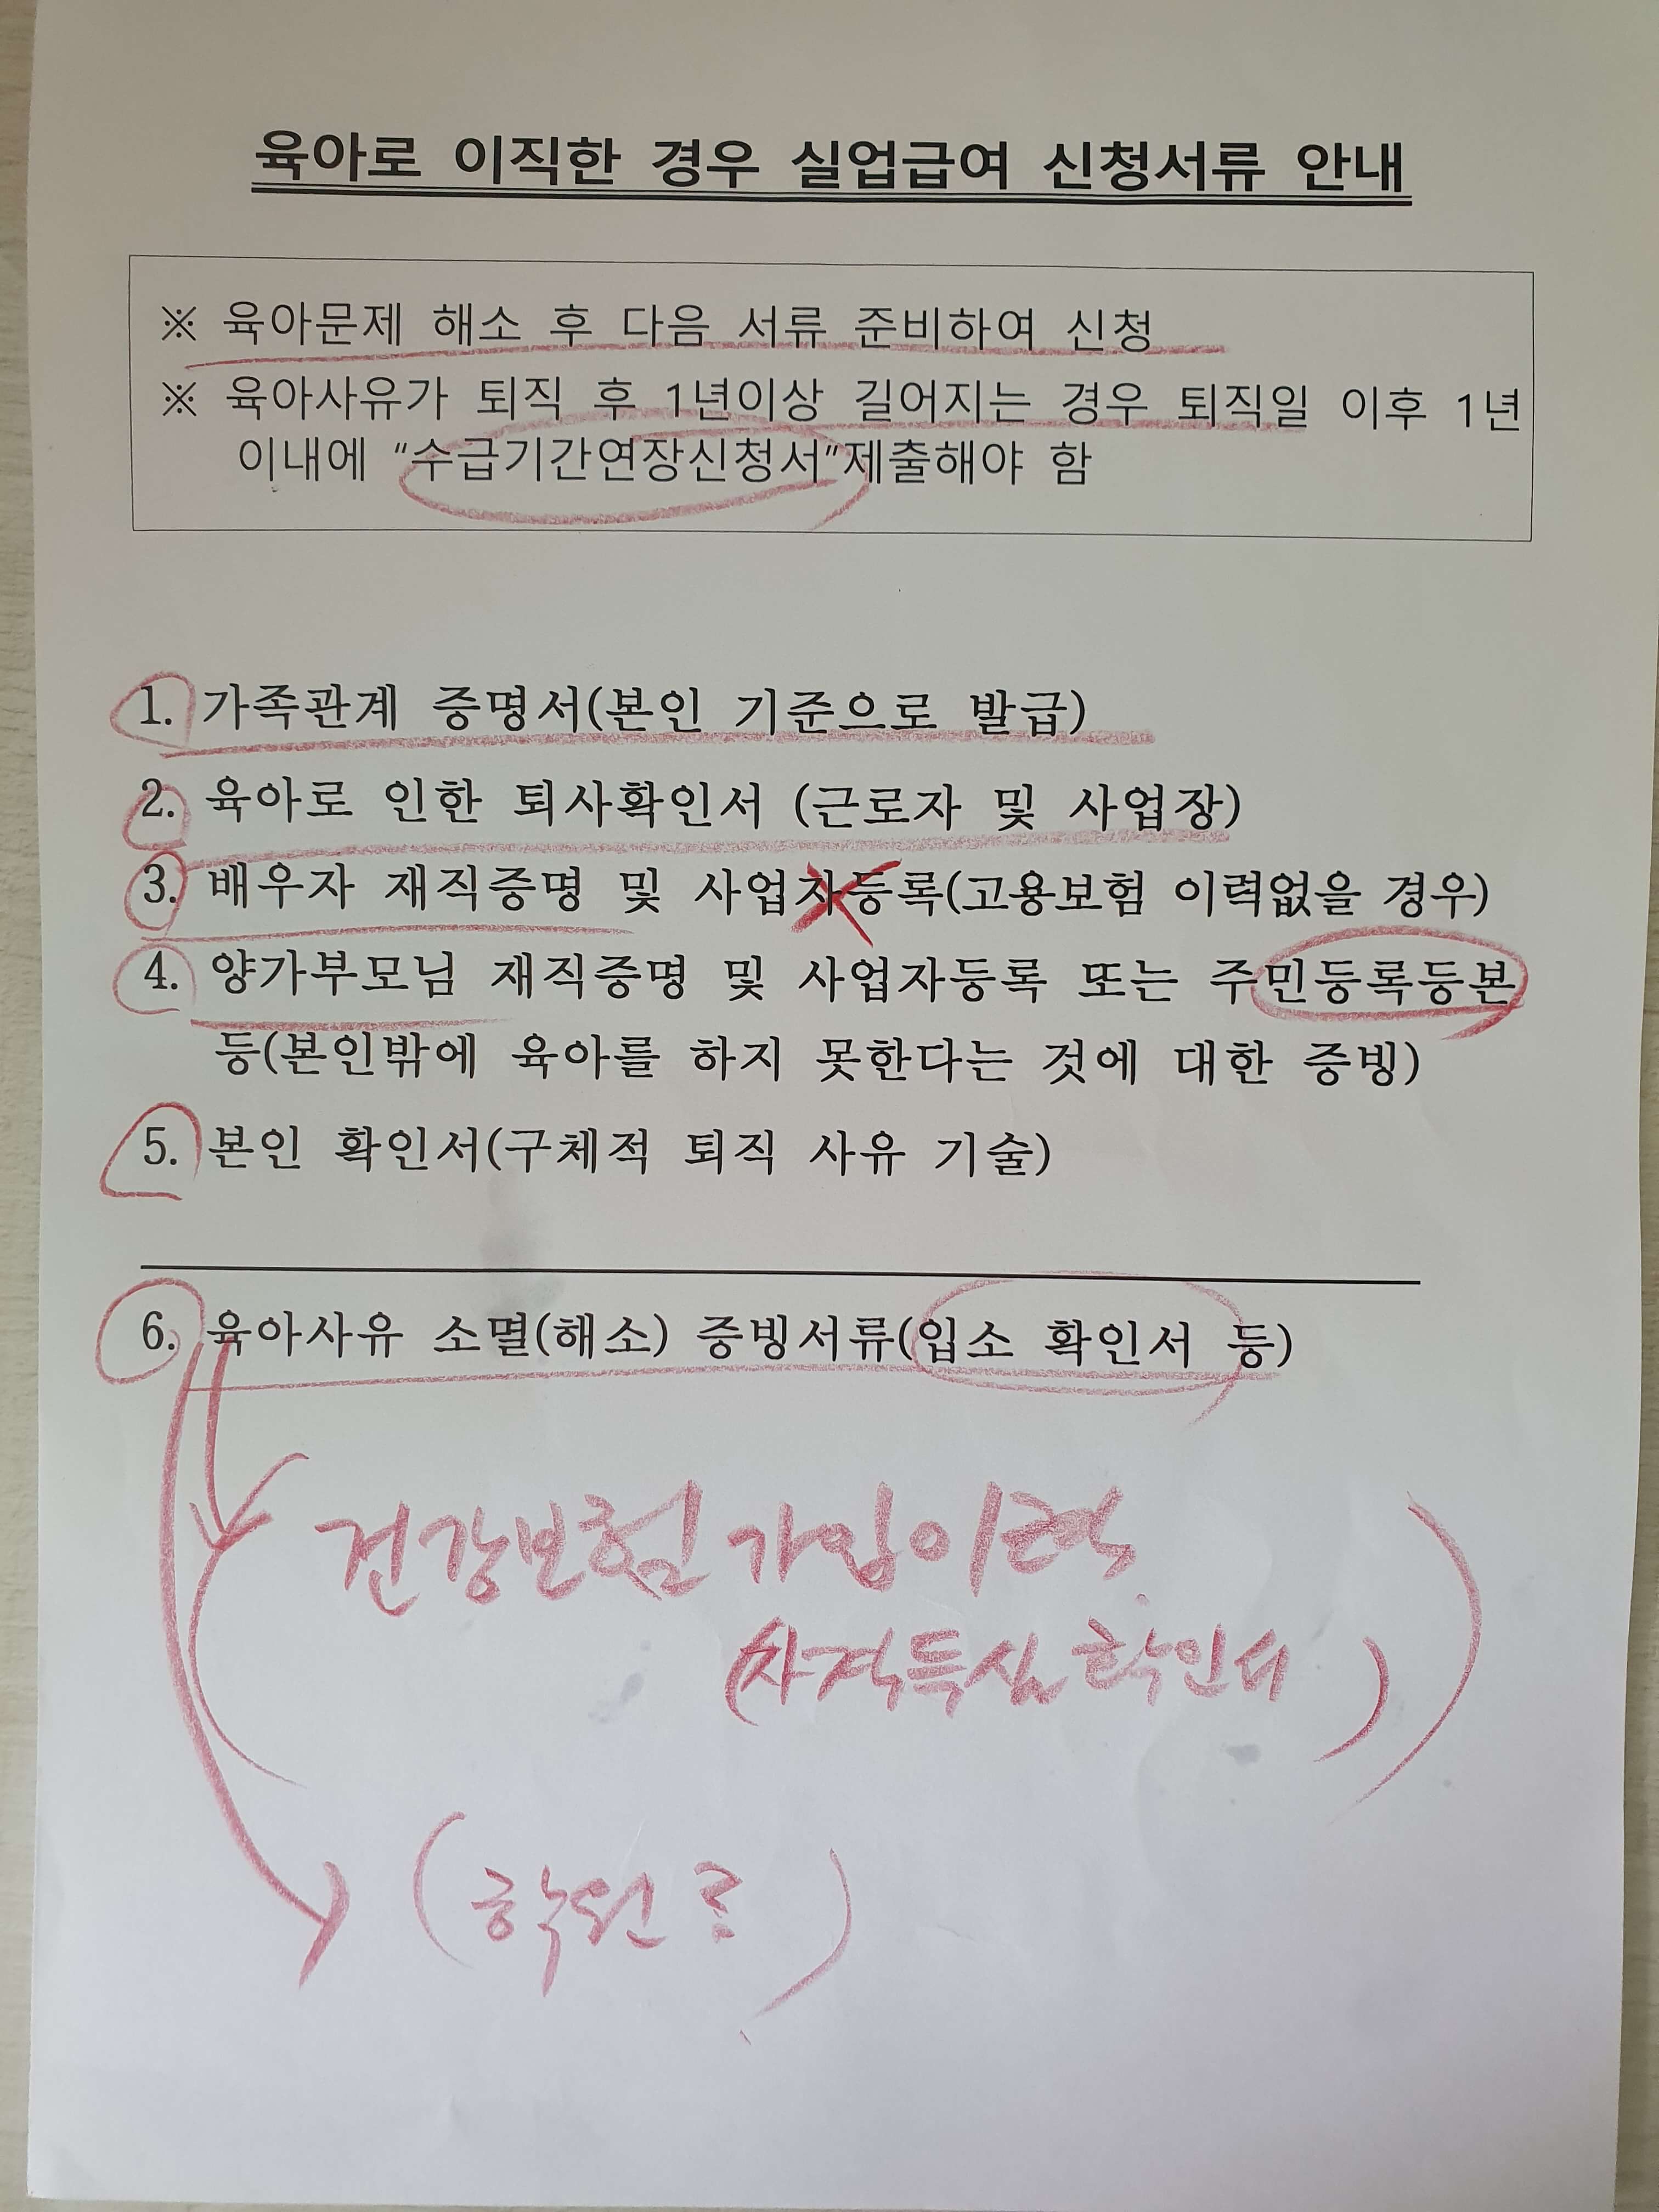 육아로 이직한 경우 실업급여 신청서류 안내
※ 육아문제 해소 후 다음 서류 준비하여 신청
※ 육아사유가 퇴직 후 1년이상 길어지는 경우 퇴직일 이후 1년
이내에 “수급기간연장신청서”제출해야 함
1. 가족관계 증명서(본인 기준으로 발급)
2. 육아로 인한 퇴사확인서 (근로자 및 사업장)
3. 배우자 재직증명 및 사업자등록(고용보험 이력없을 경우)
4. 양가부모님 재직증명 및 사업자등록 또는 주민등록등본
등(본인밖에 육아를 하지 못한다는 것에 대한 증빙)
5. 본인 확인서(구체적 퇴직 사유 기술)
6. 육아사유 소멸(해소) 증빙서류(입소 확인서 등)
건강보험 가입이력
(자격득실 확인서)
(학원 )